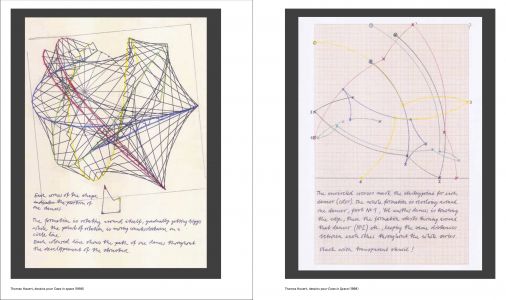 Each corner of the shape
indicates the position of
one dancer
The formation is rotating around itself, gradually getting bigger
while the point of rotation is moving counterclockwise on a
circle line.
Each coloured line shows the path of one dancer throughout
the development of the
Thomas Hauert, dessins pour Cows in space (1998)
The encircled crosses mark the starting point for each
dancer (color). The whole formation is revolving around
one dancer, first No 1, till another dancer is touching
the edge, then the formation starts turning around
that dancer (No 2) etc., keeping the same distances
between each other throughout the whole series.
check with transparent stencil!
Thomas Hauert, dessins pour Cows in Space (1998)